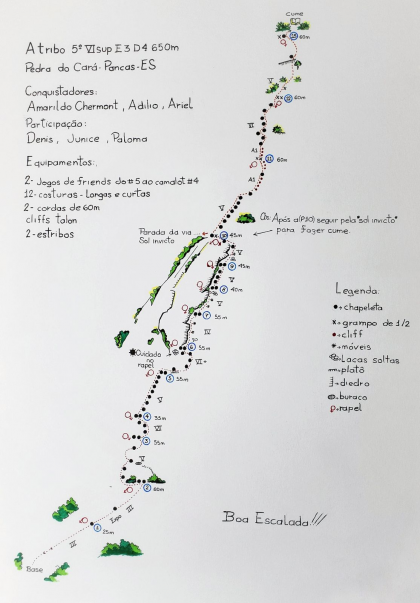 Cume
13 60m
Atribo 5º VIsup E3 D4 650m
Pedra do Cará-Pancas-ES
Conquistadores:
Amarildo Chermont, Adilio, Ariel
Participação:
Denis, Junice, Paloma
Equipamentos:
2- Jogos de friends do #5 ao camalot #4
12-costuras - Longas e curtas
2- cordas de 60m
cliffs talon
2-estribos
V
12 60m
VI
A1
11 60m
A1
V
Obs: Após a(P10) seguir pela "sol invicto"
para fazer cume.
Parada da via
Sol invicto
10 45m
9 45m
V
8 40m
7 55m
IV
6 55m
Cuidado
no
rapel
VI
5 55m
V
4 35m
VI
3 55m
V
2 60m
III
Expo
1 25m
III
Base
Legenda:
chapeleta
grampo de 1/2
cliff
móveis
Lacas soltas
platô
diedro
buraco
rapel
Boa Escalada!!!